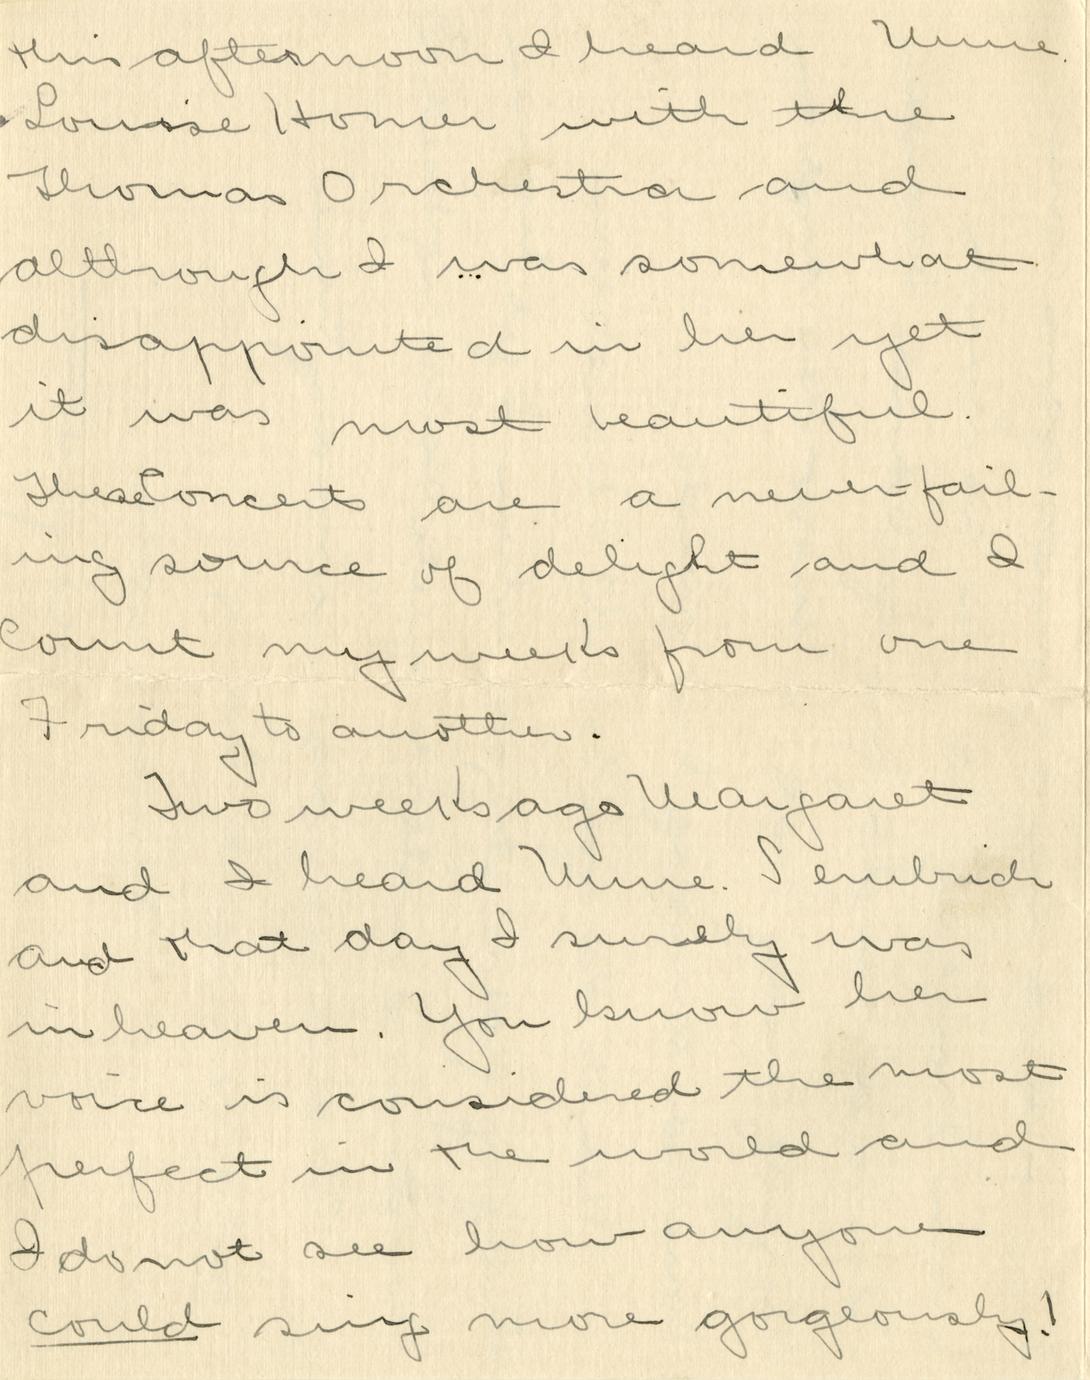 this afternoon I heard Mme.
Louise Homer with the
Thomas Orchestra and
although I was somewhat
disappointed in her yet
it was most beautiful.
These Concerts are a never-fail-
ing source of delight and I
count my weeks from one
Friday to another.
Two weeks ago Margaret
and I heard Mme. Sembrich
and that day I surely was
in heaven. You know her
voice is considered the most
perfect in the world and
I do not see how anyone
could sing more gorgeously!